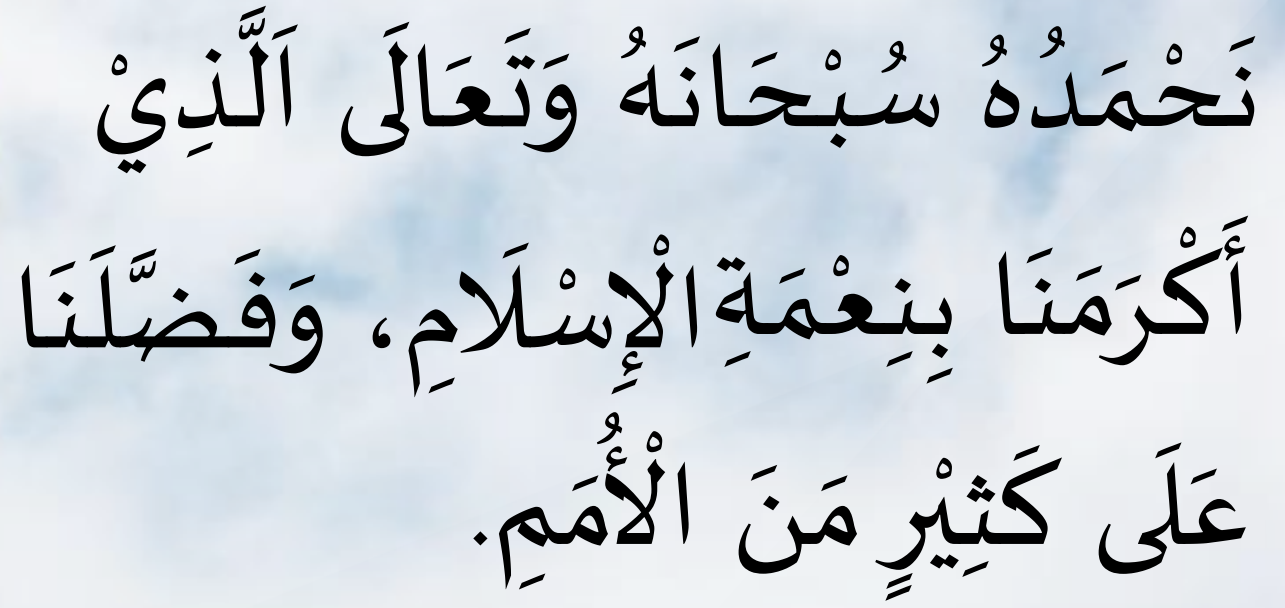 نَحْمَدُهُ سُبْحَانَهُ وَتَعَالَى اَلَّذِيْ
أَكْرَمَنَا بِنِعْمَةِ الْإِسْلَامِ، وَفَضَّلَنَا
عَلَى كَثِيْرٍ مَنَ الْأُمَمِ.